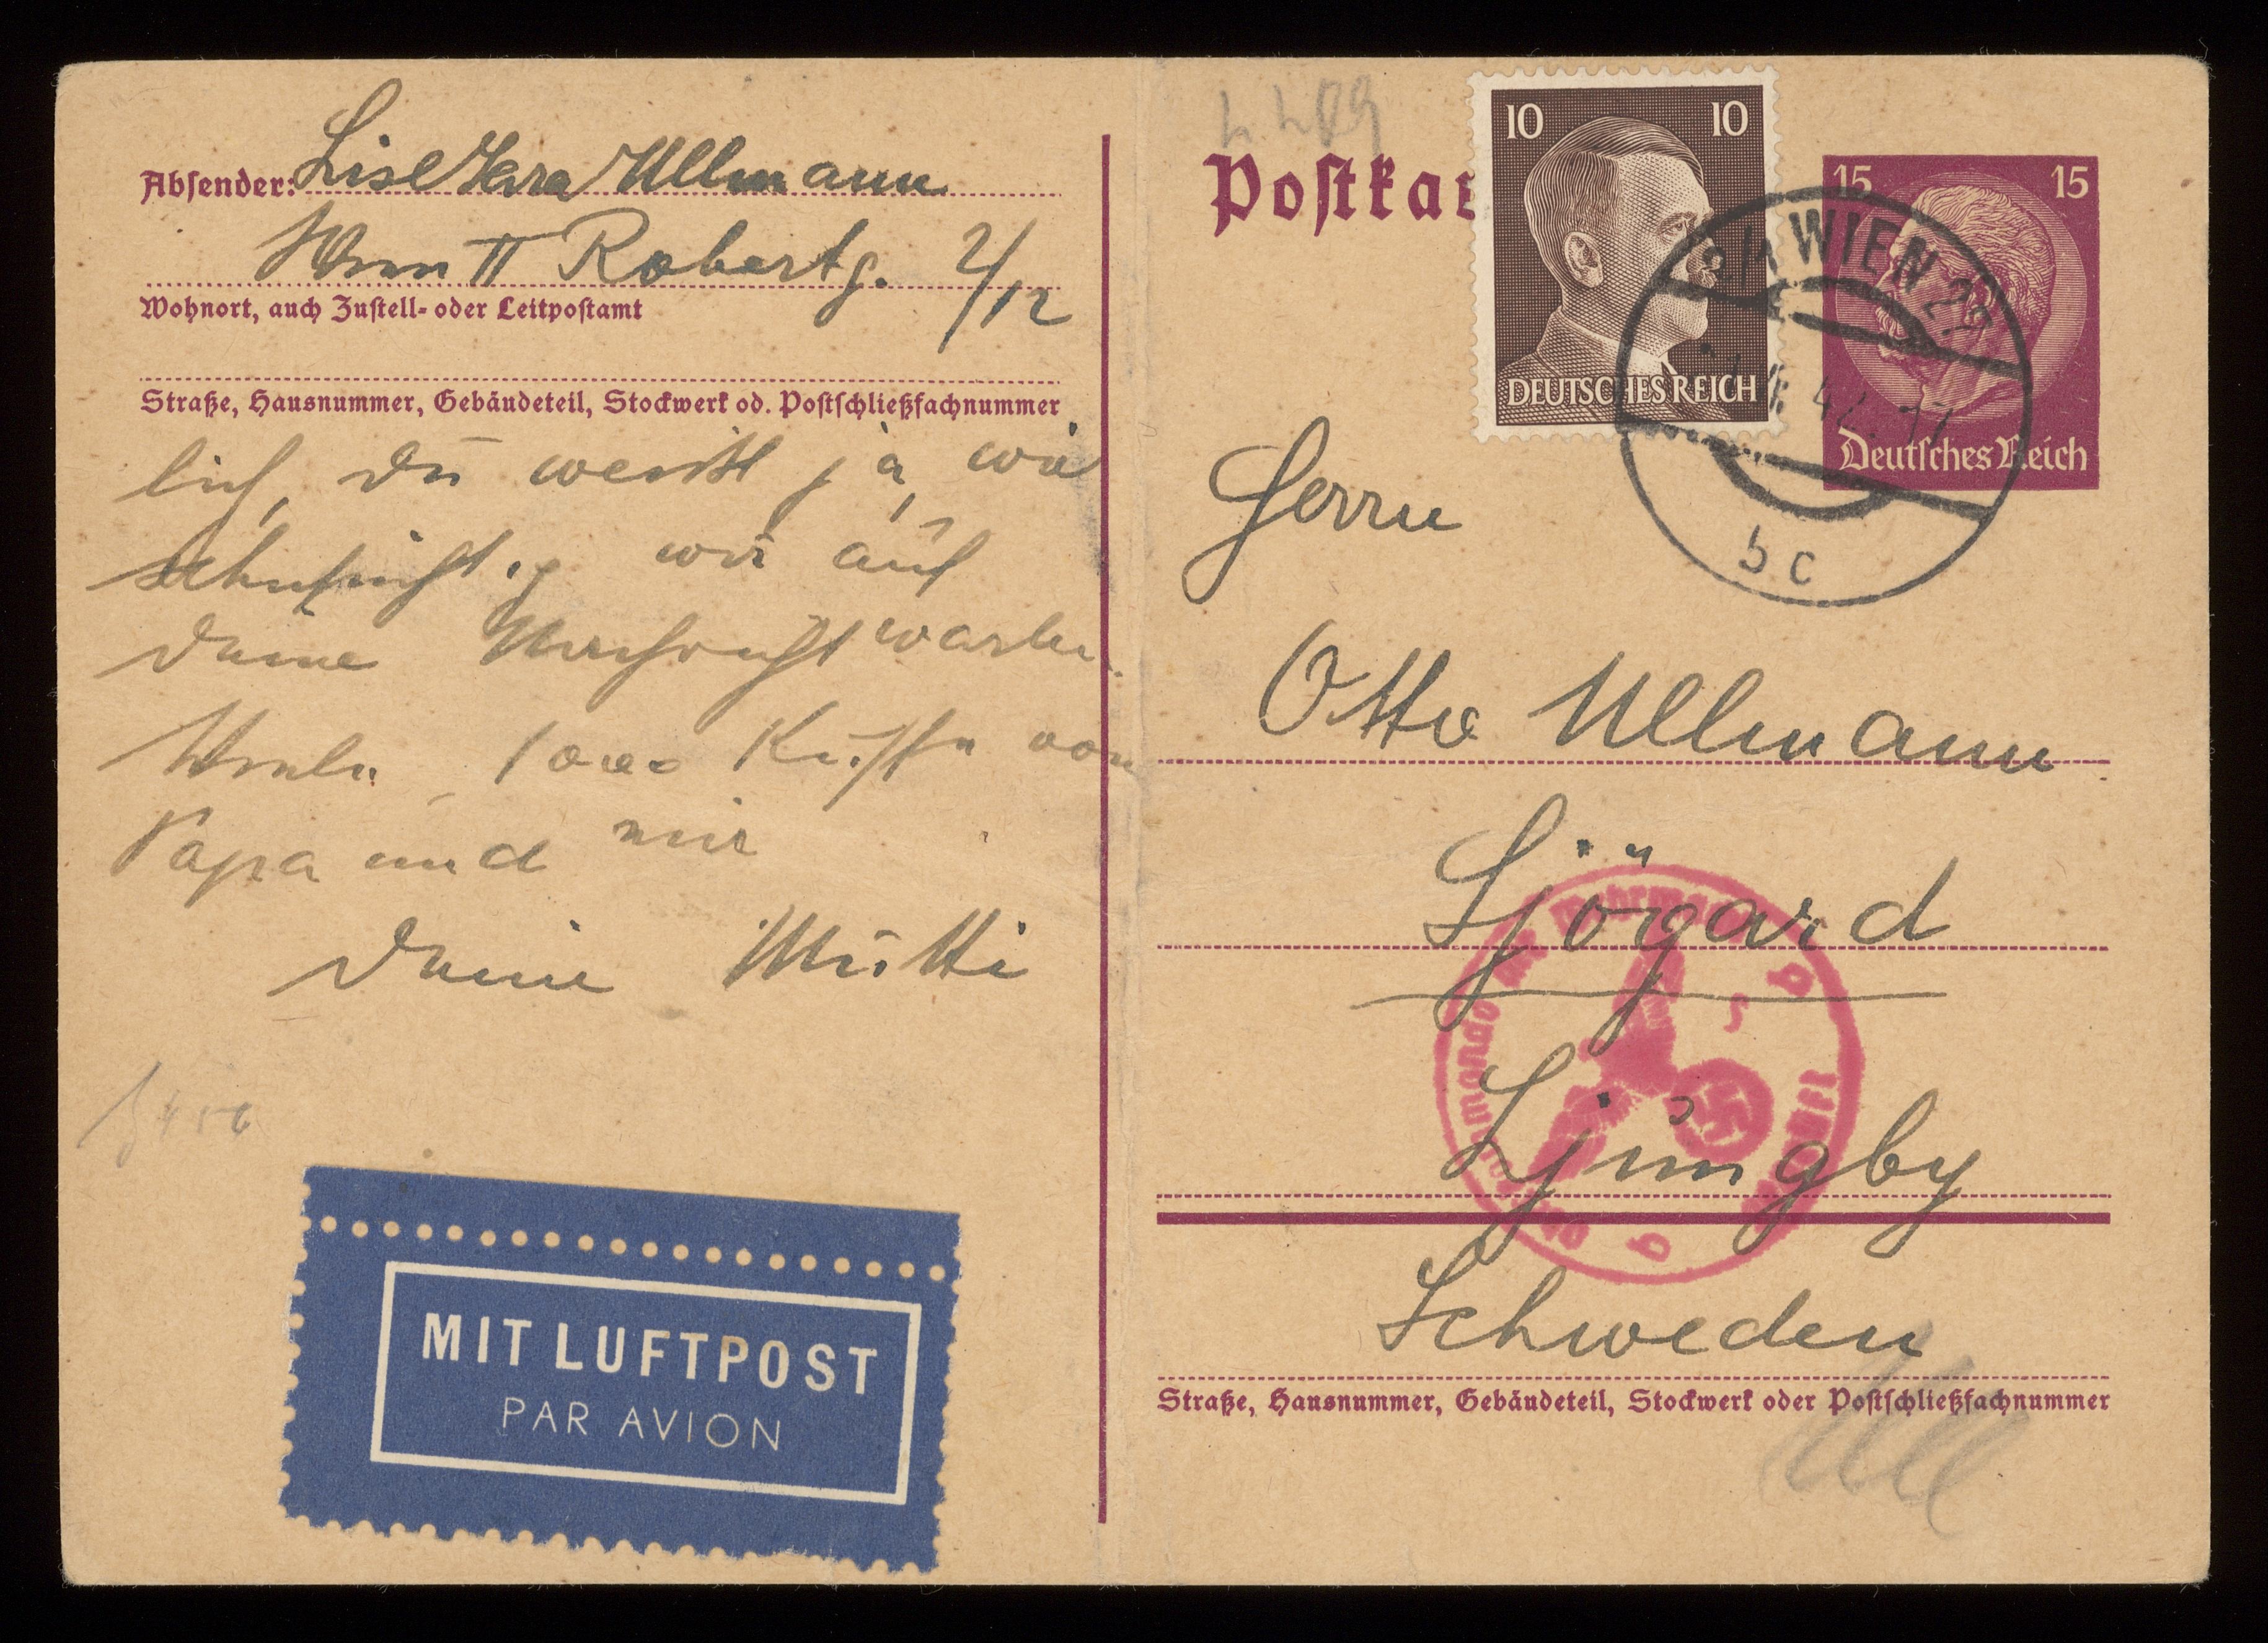 Absender: Lise Sara Ullmann
Wien II Robertg. 2/12
Wohnort, auch Zustell- oder Leitpostamt
Straße, Hausnummer, Gebäudeteil, Stockwerk od. Postschließfachnummer
lich, Du weißt ja, wie
sehnsüchtig wir auf
Deine Nachricht warten.
1000 Küsse von
Papa und mir
Deine Mutti
MIT LUFTPOST
PAR AVION
Postkar
10 10
DEUTSCHES REICH
15 15
Deutsches Reich
WIEN
bc
Herrn
Otto Ullmann
Sjögård
Ljungby
Schweden
Straße, Hausnummer, Gebäudeteil, Stockwerk oder Postschließfachnummer
b
b